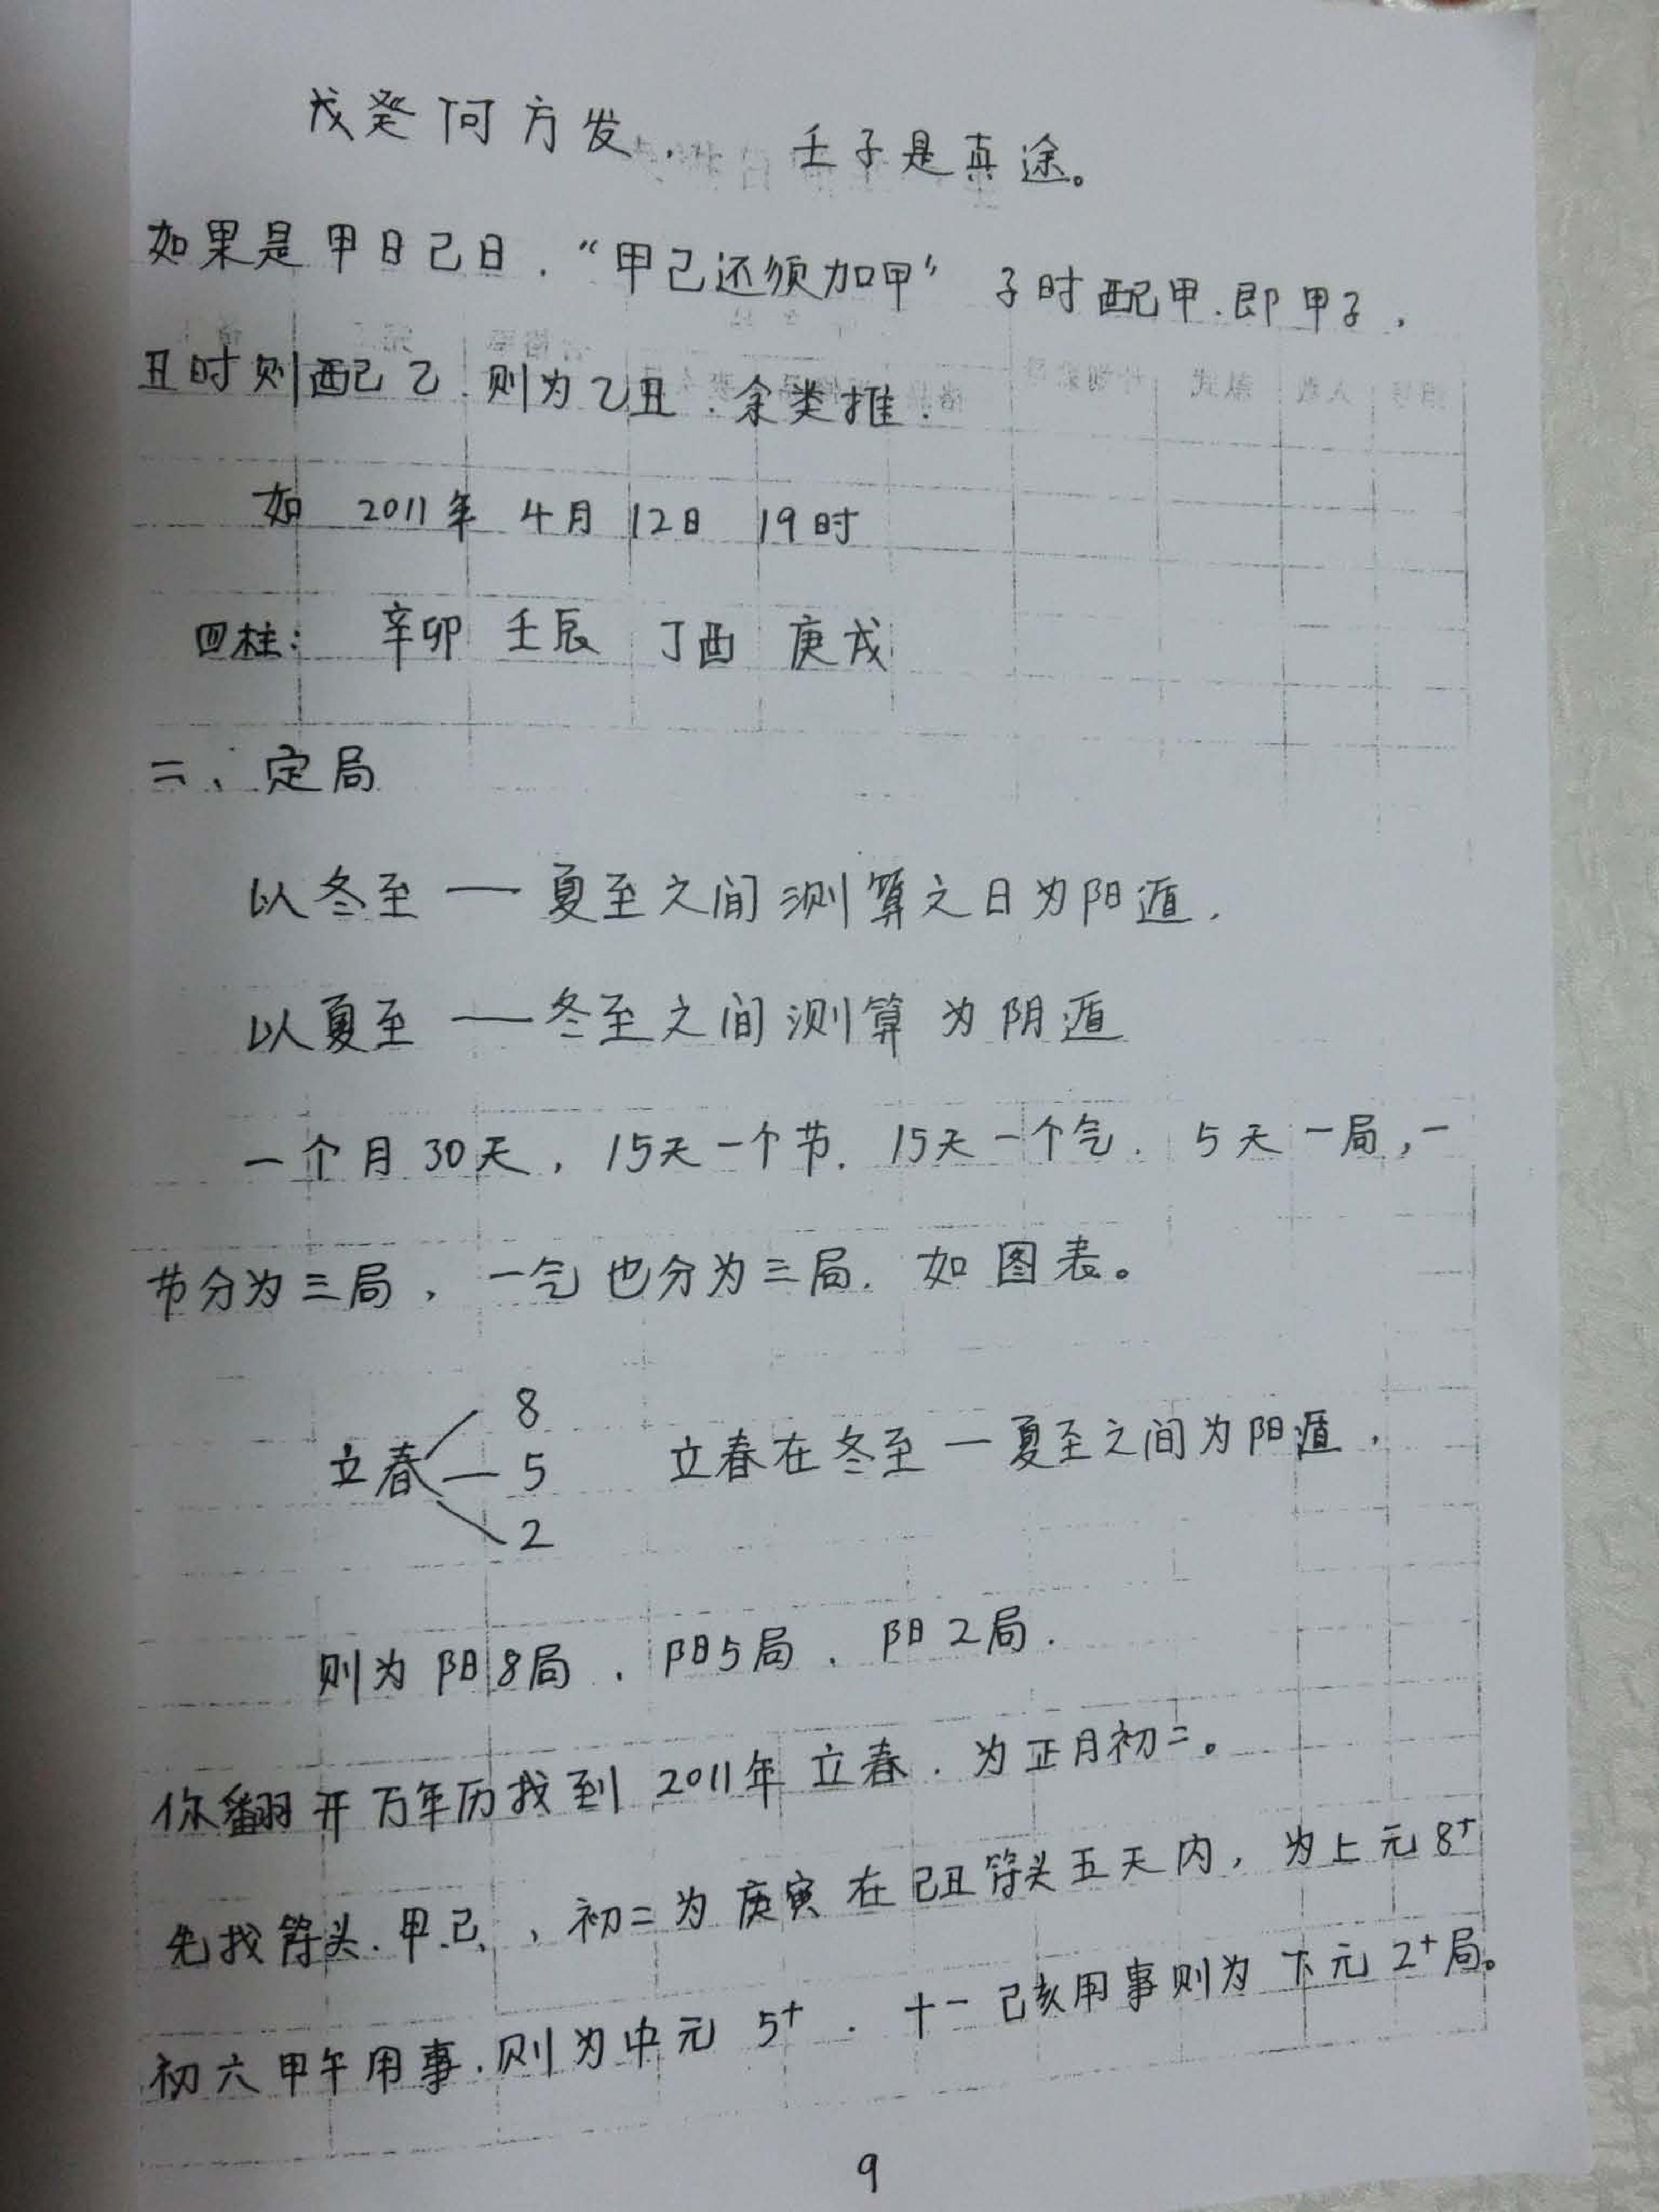 戊癸何方发，　壬子是真途。
如果是甲日己日．“甲己还须加甲”子时配甲．即甲子，
丑时则配乙．则为乙丑．余类推．
如　2011年　4月　12日　19时
四柱：　辛卯　壬辰　丁酉　庚戌
二、定局
以冬至 — 夏至之间测算之日为阳遁．
以夏至 — 冬至之间测算为阴遁
一个月30天，15天一个节．15天一个气．5天一局，一
节分为三局，一气也分为三局．如图表。
8
立春 — 5　立春在冬至 — 夏至之间为阳遁．
2
则为阳8局．阳5局．阳2局．
你翻开万年历找到2011年立春．为正月初二。
先找符头．甲．己、，初二为庚寅在己丑符头五天内，为上元8+
初六甲午用事．则为中元5+．十一己亥用事则为下元2+局。
9